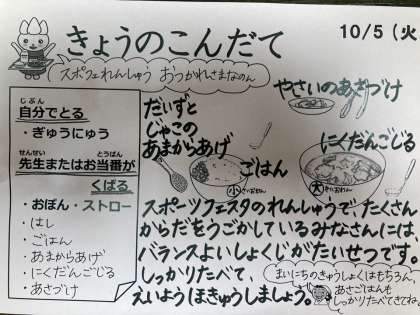 きょうのこんだて
10/5 (火
スポフェれんしゅう おつかれさまなのん
やさいのあさづけ
だいずと
じゃこの
あまからあげ
にくだんごじる
ごはん
小
大
じぶん
自分でとる
・ぎゅうにゅう
せんせい とうばん
先生またはお当番が
くばる
・おぼん・ストロー
・はし
・ごはん
・あまからあげ
・にくだんごじる
・あさづけ
スポーツフェスタのれんしゅうで、たくさん
からだをうごかしているみなさんには、
バランスよいしょくじがたいせつです。
しっかりたべて、
えいようほきゅうしましょう。
まいにちのきゅうしょくはもちろん、
あさごはんも
しっかりたべてきてね。